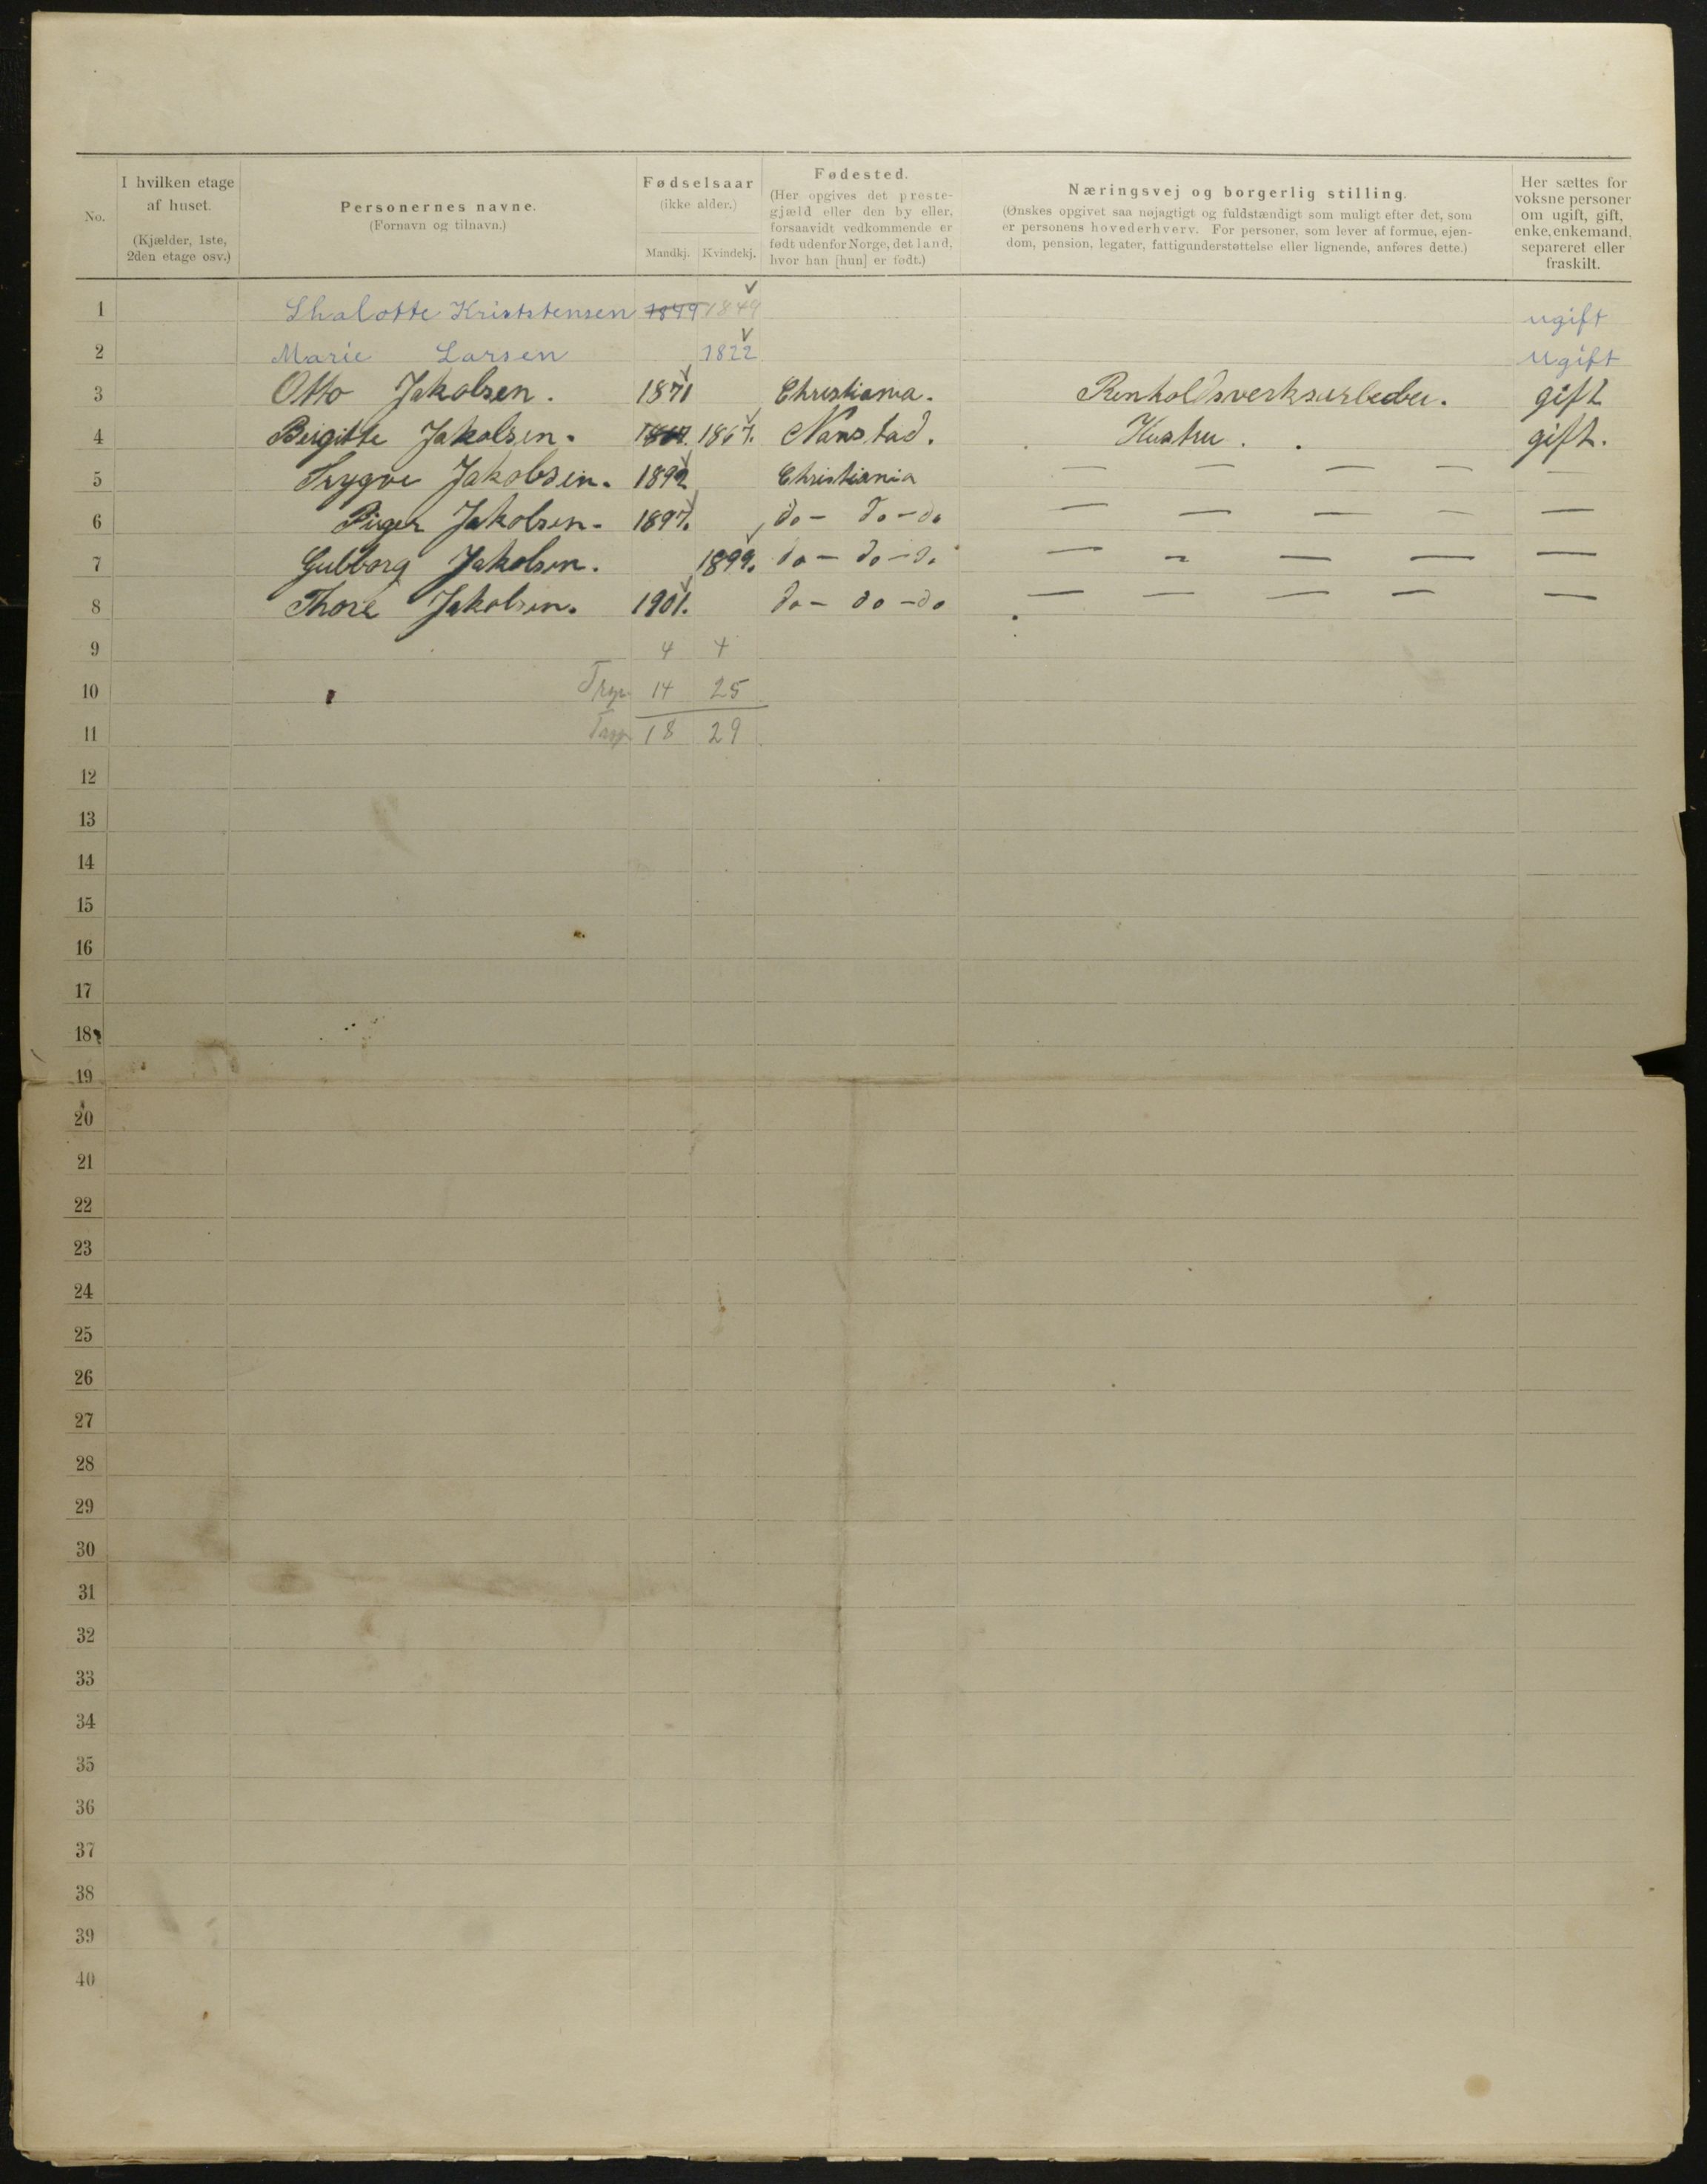 No.
I hvilken etage af huset.
(Kjælder, 1ste, 2den etage osv.)
Personernes navne.
(Fornavn og tilnavn.)
Fødselsaar
(ikke alder.)
Mandkj. Kvindekj.
Fødested.
(Her opgives det preste-
gjæld eller den by eller,
forsaavidt vedkommende er
født udenfor Norge, det land,
hvor han [hun] er født.)
Næringsvej og borgerlig stilling.
(Ønskes opgivet saa nøjagtigt og fuldstændigt som muligt efter det, som
er personens hovederhverv. For personer, som lever af formue, ejen-
dom, pension, legater, fattigunderstøttelse eller lignende, anføres dette.)
Her sættes for
voksne personer
om ugift, gift,
enke, enkemand,
separeret eller
fraskilt.
1 Shalotte Kriststensen 1849 1849 ugift
2 Marie Larsen 1822 Ugift
3 Otto Jakobsen. 1871 Christiania. Renholdsverksarbeder. gift
4 Birgitte Jakobsen. 1867. 1867. Nanstad. Hustru. gift.
5 Trygve Jakobsen. 1892 Christiania — — — — —
6 Jakobsen. 1897. do - do - do — — — — —
7 Gulborg Jakobsen. 1899. do - do - do — — — — —
8 Thore Jakobsen. 1901. do - do - do — — — — —
9 4 4
10 14 25
11 18 29
12
13
14
15
16
17
18
19
20
21
22
23
24
25
26
27
28
29
30
31
32
33
34
35
36
37
38
39
40